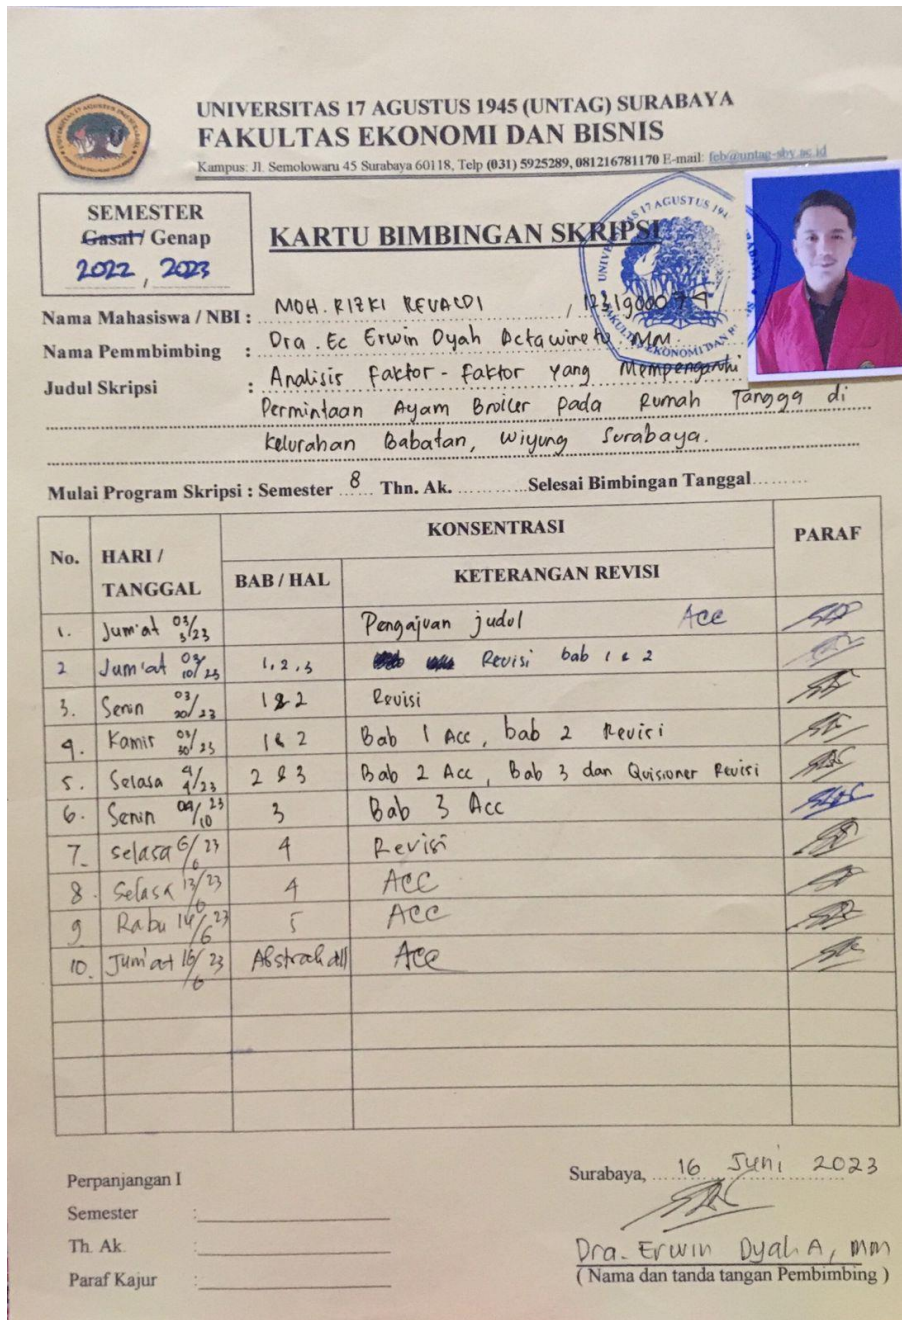 UNIVERSITAS 17 AGUSTUS 1945 (UNTAG) SURABAYA
FAKULTAS EKONOMI DAN BISNIS
Kampus: Jl. Semolowaru 45 Surabaya 60118, Telp (031) 5925289, 081216781170 E-mail: feb@untag-sby.ac.id
SEMESTER
Gasal / Genap
2022, 2023
KARTU BIMBINGAN SKRIPSI
Nama Mahasiswa / NBI : MOH. RIZKI REVALDI, 1231900074
Nama Pemmbimbing : Dra. Ec Erwin Dyah Actawinetu MM.
Judul Skripsi : Analisis faktor-faktor yang Mempengaruhi
Permintaan Ayam Broiler pada Rumah Tangga di
kelurahan Babatan, Wiyung Surabaya.
Mulai Program Skripsi : Semester 8 Thn. Ak. Selesai Bimbingan Tanggal
No. HARI / TANGGAL KONSENTRASI PARAF
BAB / HAL KETERANGAN REVISI
1. Jum'at 03/3/23 Pengajuan judul Acc
2 Jum'at 03/10/23 1, 2, 3 Revisi bab 1 & 2
3. Senin 03/20/23 1 & 2 Revisi
4. Kamis 03/30/23 1 & 2 Bab 1 Acc, bab 2 Revisi
5. Selasa 4/4/23 2 & 3 Bab 2 Acc, Bab 3 dan Quisioner Revisi
6. Senin 04/10 23 3 Bab 3 Acc
7. Selasa 6/6 23 4 Revisi
8. Selasa 13/6 23 4 ACC
9 Rabu 14/6 23 5 ACC
10. Jum'at 16/6 23 Abstrak dll Acc
Perpanjangan I
Semester :
Th. Ak. :
Paraf Kajur :
Surabaya, 16 Juni 2023
Dra. Erwin Dyah A, MM
( Nama dan tanda tangan Pembimbing )